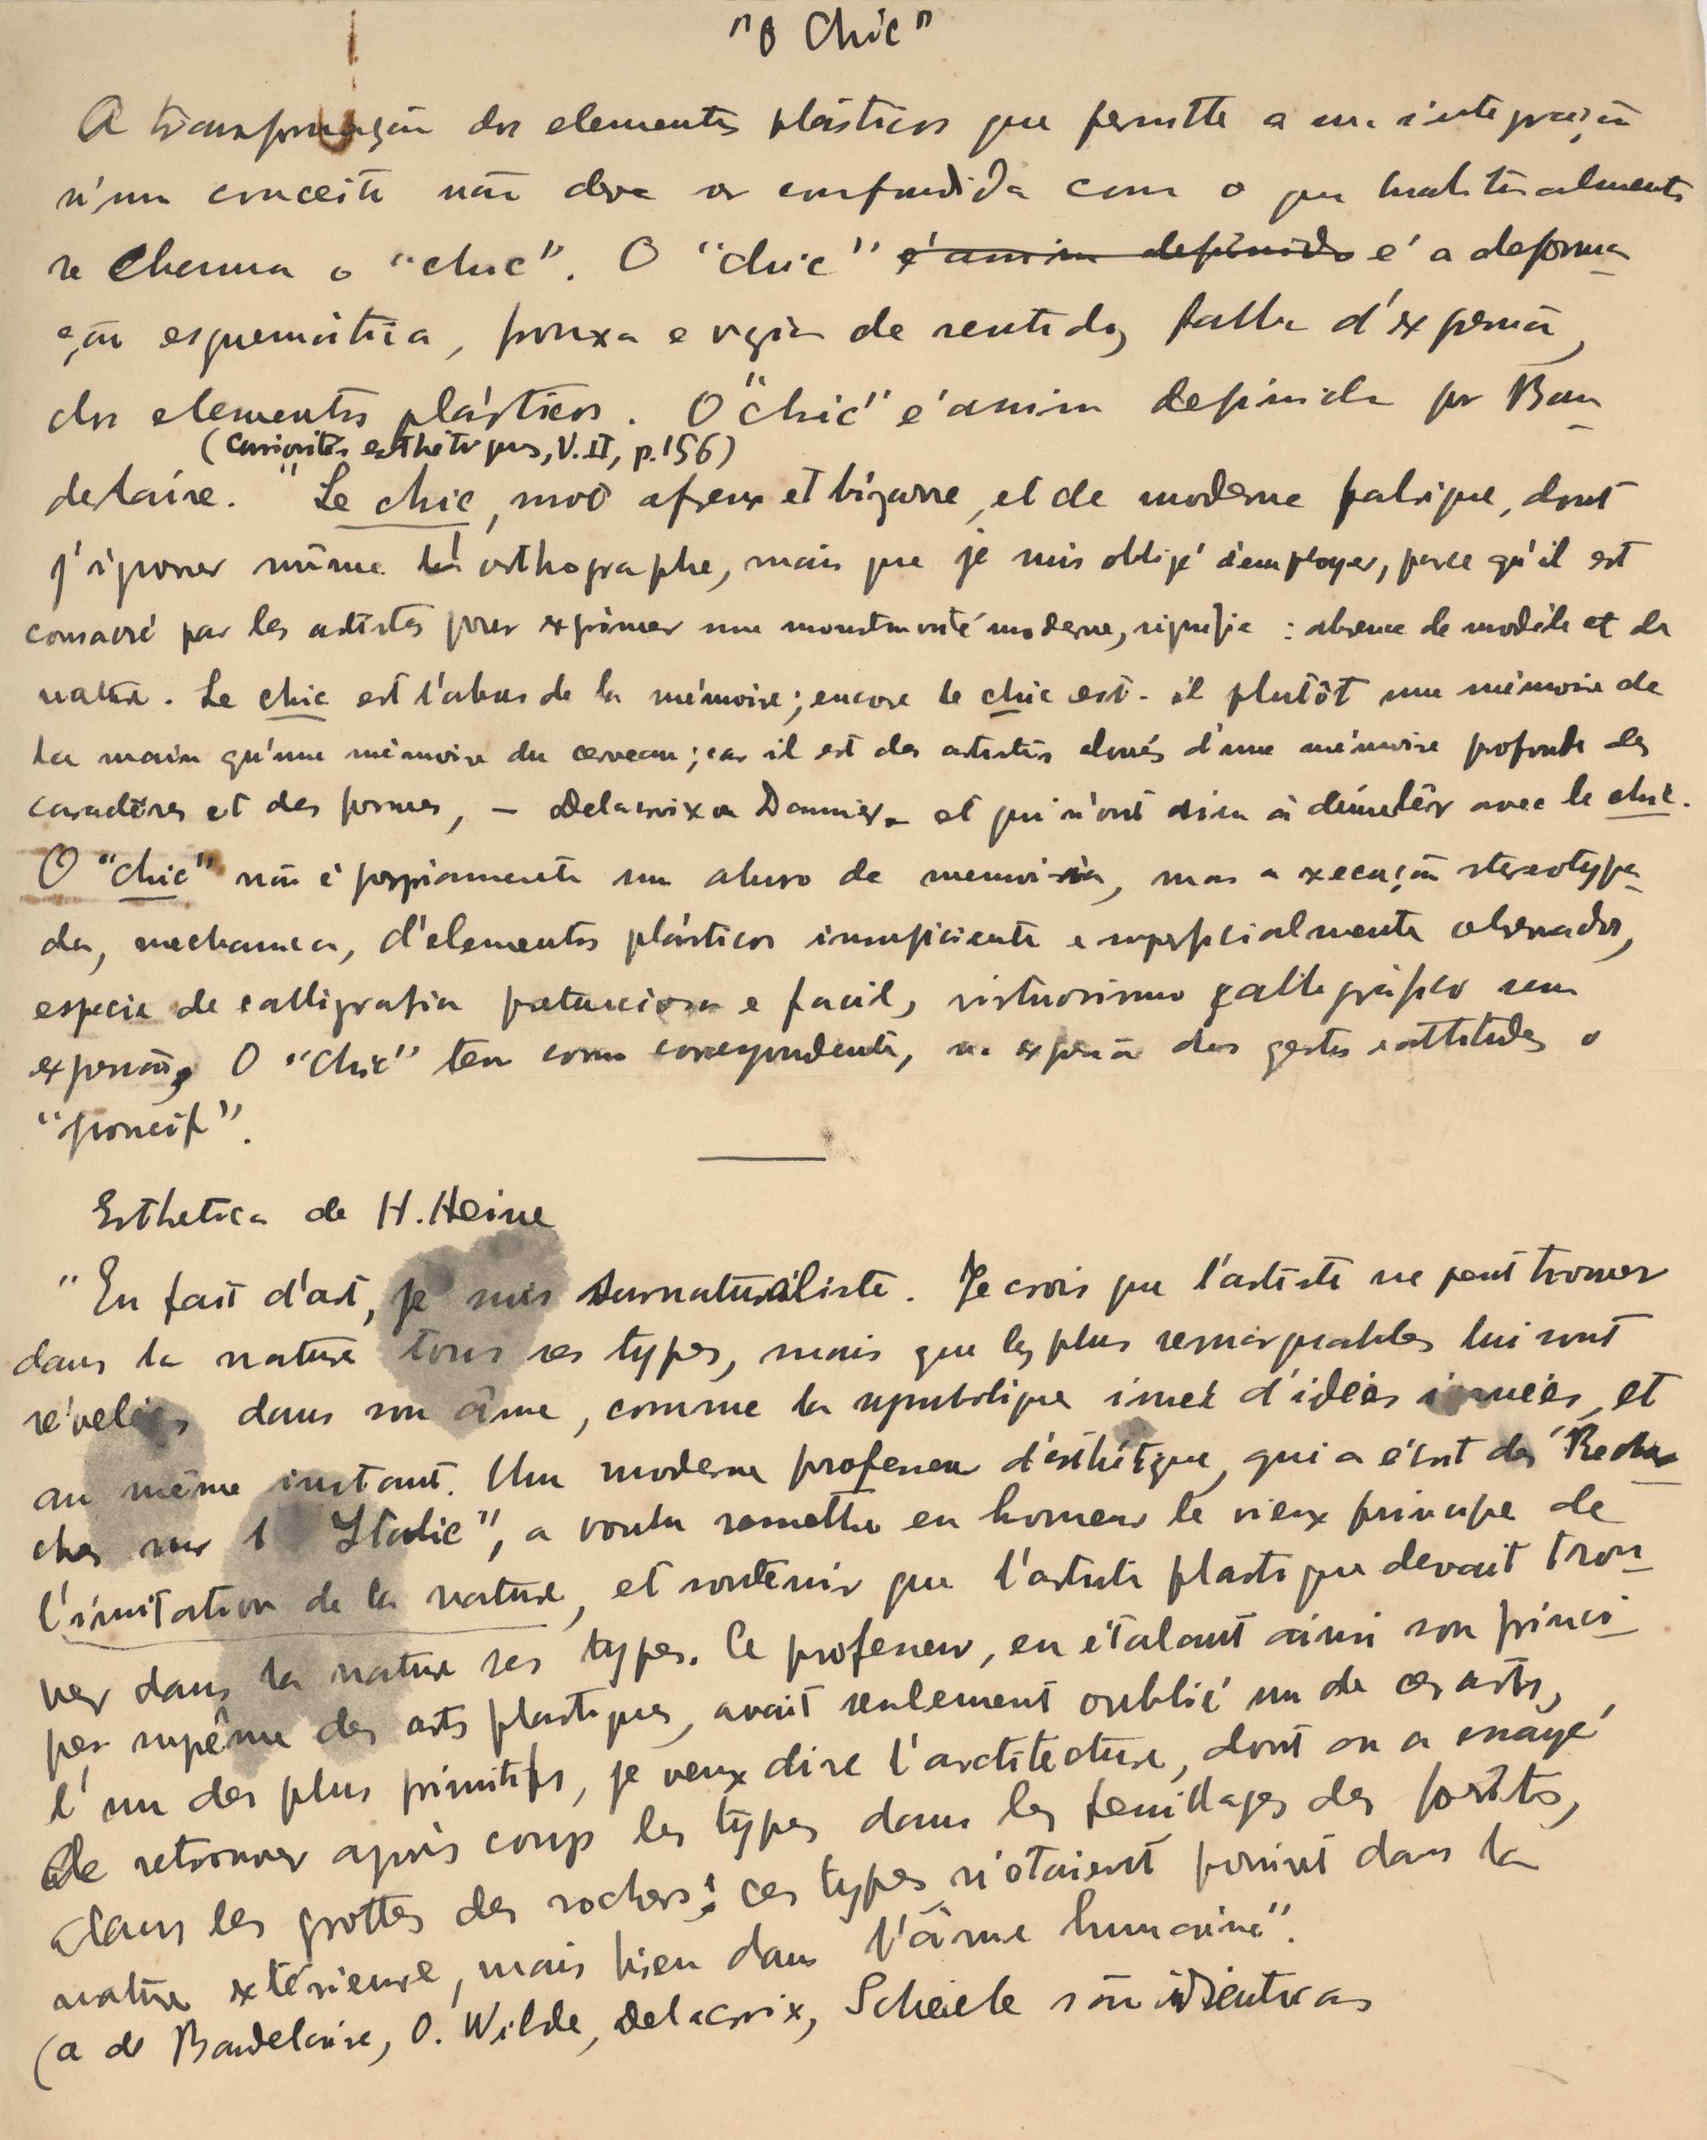 "O Chic"
A transformação dos elementos plásticos que permitte a sua integração
n'um conceito não deve ser confundida com o que habitualmente
se chama o "chic". O "chic" é assim definido é a deforma-
ção esquemática, frouxa e vazia de sentido, falta d'expressão,
dos elementos plásticos. O "chic" é assim definido por Bau-
(Curiosités esthétiques, V. II, p. 156)
delaire. "Le chic, mot afreux et bizarre, et de moderne fabrique, dont
j'ignorer même l'orthographe, mais que je suis obligé d'employer, parce qu'il est
consacré par les artistes pour exprimer une monstruosité moderne, signifie : absence de modèle et de
nature. Le chic est l'abus de la mémoire; encore le chic est-il plutôt une mémoire de
la main qu'une mémoire du cerveau; car il est des artistes doués d'une mémoire profonde des
caractères et des formes, – Delacroix ou Daumier – et qui n'ont rien à démêler avec le chic.
O "chic" não é propriamente um abuso de memoria, mas a execução stereotypa-
da, mechanica, d'elementos plásticos insuficiente e superficialmente observados,
especie de calligrafia pretenciosa e facil, virtuosismo calligráfico sem
expressão. O "chic" tem como correspondente, na expressão dos gestos e attitudes o
"poncif".
Esthetica de H. Heine
"En fait d'art, je suis surnaturaliste. Je crois que l'artiste ne peut trouver
dans la nature tous ses types, mais que les plus remarquables lui sont
révélés dans son âme, comme la symbolique innée d'idées innées, et
au même instant. Un moderne professeur d'esthétique, qui a écrit des "Recher-
ches sur l'Italie", a voulu remettre en honneur le vieux principe de
l'imitation de la nature, et soutenir que l'artiste plastique devait trou-
ver dans la nature ses types. Ce professeur, en étalant ainsi son princi-
pe suprême des arts plastiques, avait seulement oublié un de ces arts,
l'un des plus primitifs, je veux dire l'architecture, dont on a essayé
de retrouver après coup les types dans les feuillages des forêts,
dans les grottes des rochers: ces types n'étaient point dans la
nature extérieure, mais bien dans l'âme humaine".
(a de Baudelaire, O. Wilde, Delacroix, Scheele são identicas